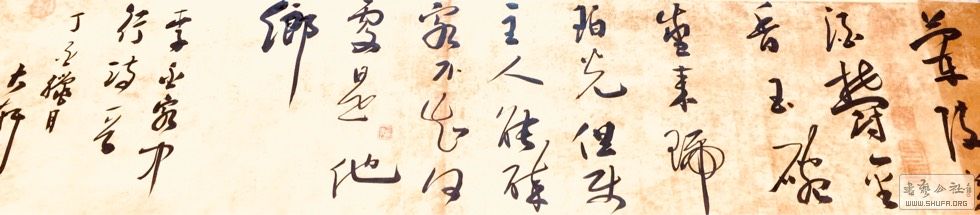 蘭陵
酒鬱金
香玉碗
盛来琥
珀光但使
主人能醉
客不知何
處是他
鄉
李白客中
行詩
丁亥臘月
书艺公社
WWW.SHUFA.ORG